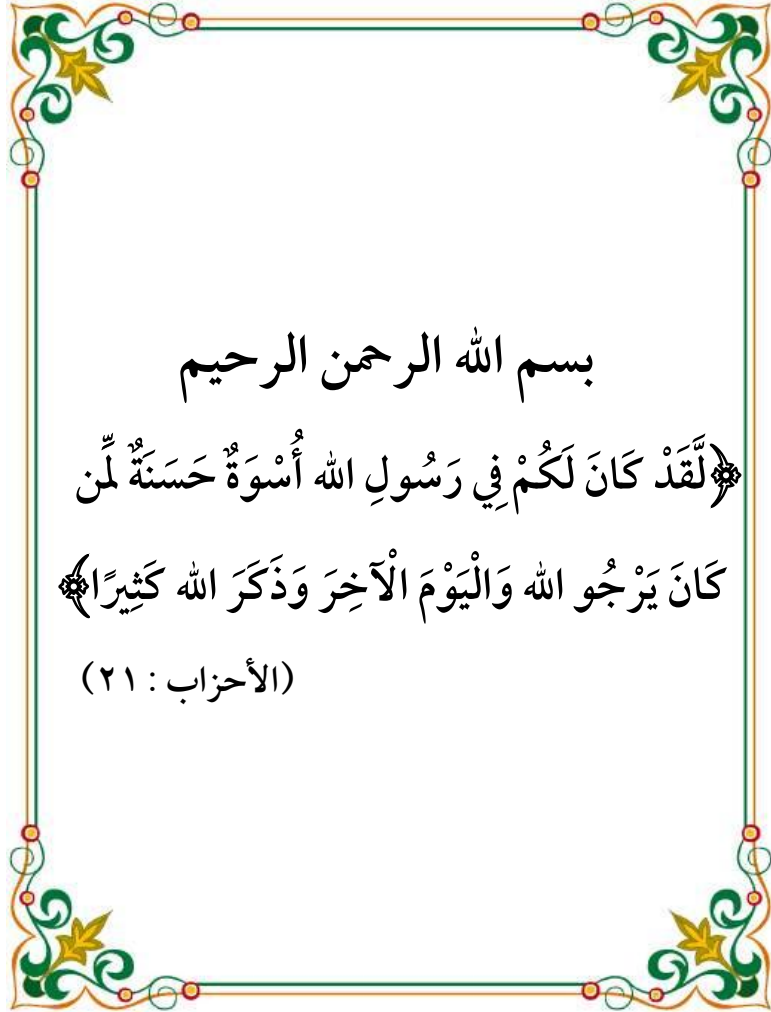 بسم الله الرحمن الرحيم
﴿لَّقَدْ كَانَ لَكُمْ فِي رَسُولِ الله أُسْوَةٌ حَسَنَةٌ لِّمَن
كَانَ يَرْجُو الله وَالْيَوْمَ الْآخِرَ وَذَكَرَ الله كَثِيرًا﴾
(الأحزاب : ٢١)